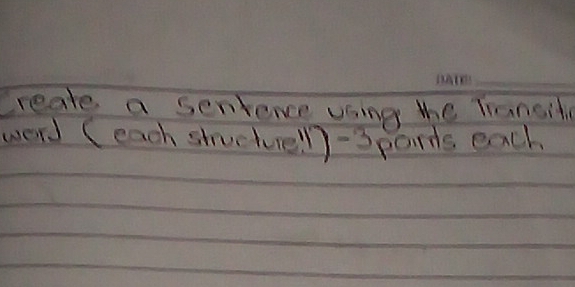 DATE:
Create a sentence using the Transitio
word (each structure!!) - 3 points each